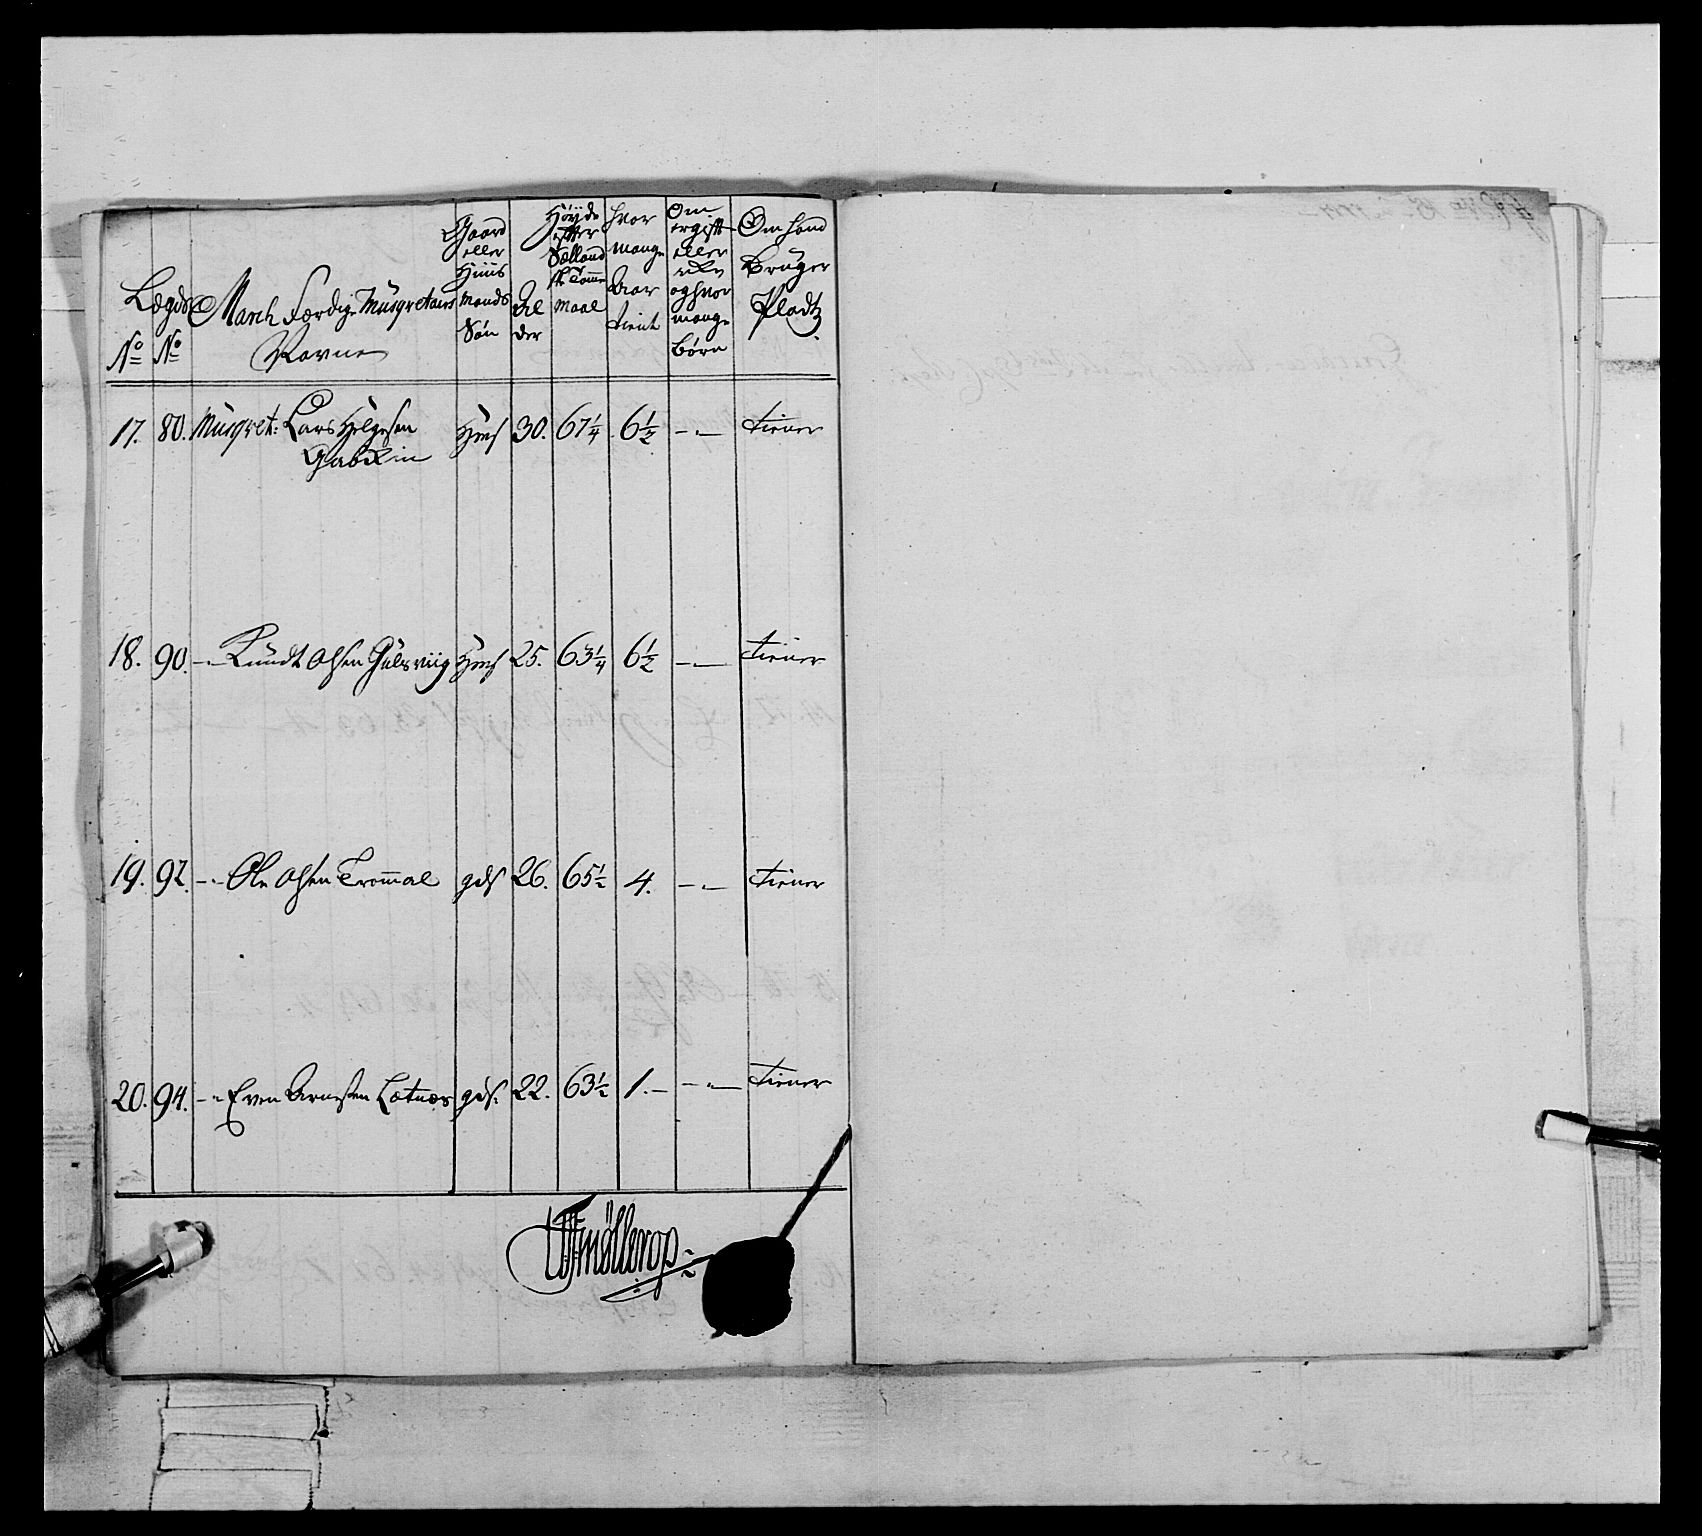 No
Lægds No
March Færdige Musqueteurs
Navne
Gaard
eller
Huus
Mands
Søn
Al
der
Høyde
efter
Sællands
Tomme
Maal
Hvor
mange
Aar
tient
Om
ergift
eller
ikke
og hvor
mange
Børn
Om hand
Bruger
Pladtz
17. 80. Musqvet: Lars Helgesen Hmf 30. 67¼ 6½ -"- tiener
18. 90. -"- Knudt Olsen Gulsviig Hmf 25. 63¼ 6½ -"- tiener
19. 92. -"- Ole Olsen Trommal gdf 26. 65½ 4. -"- tiener
20. 94. -"- Even Arnesen gdf. 22. 63½ 1.- -"- tiener
Møllerop